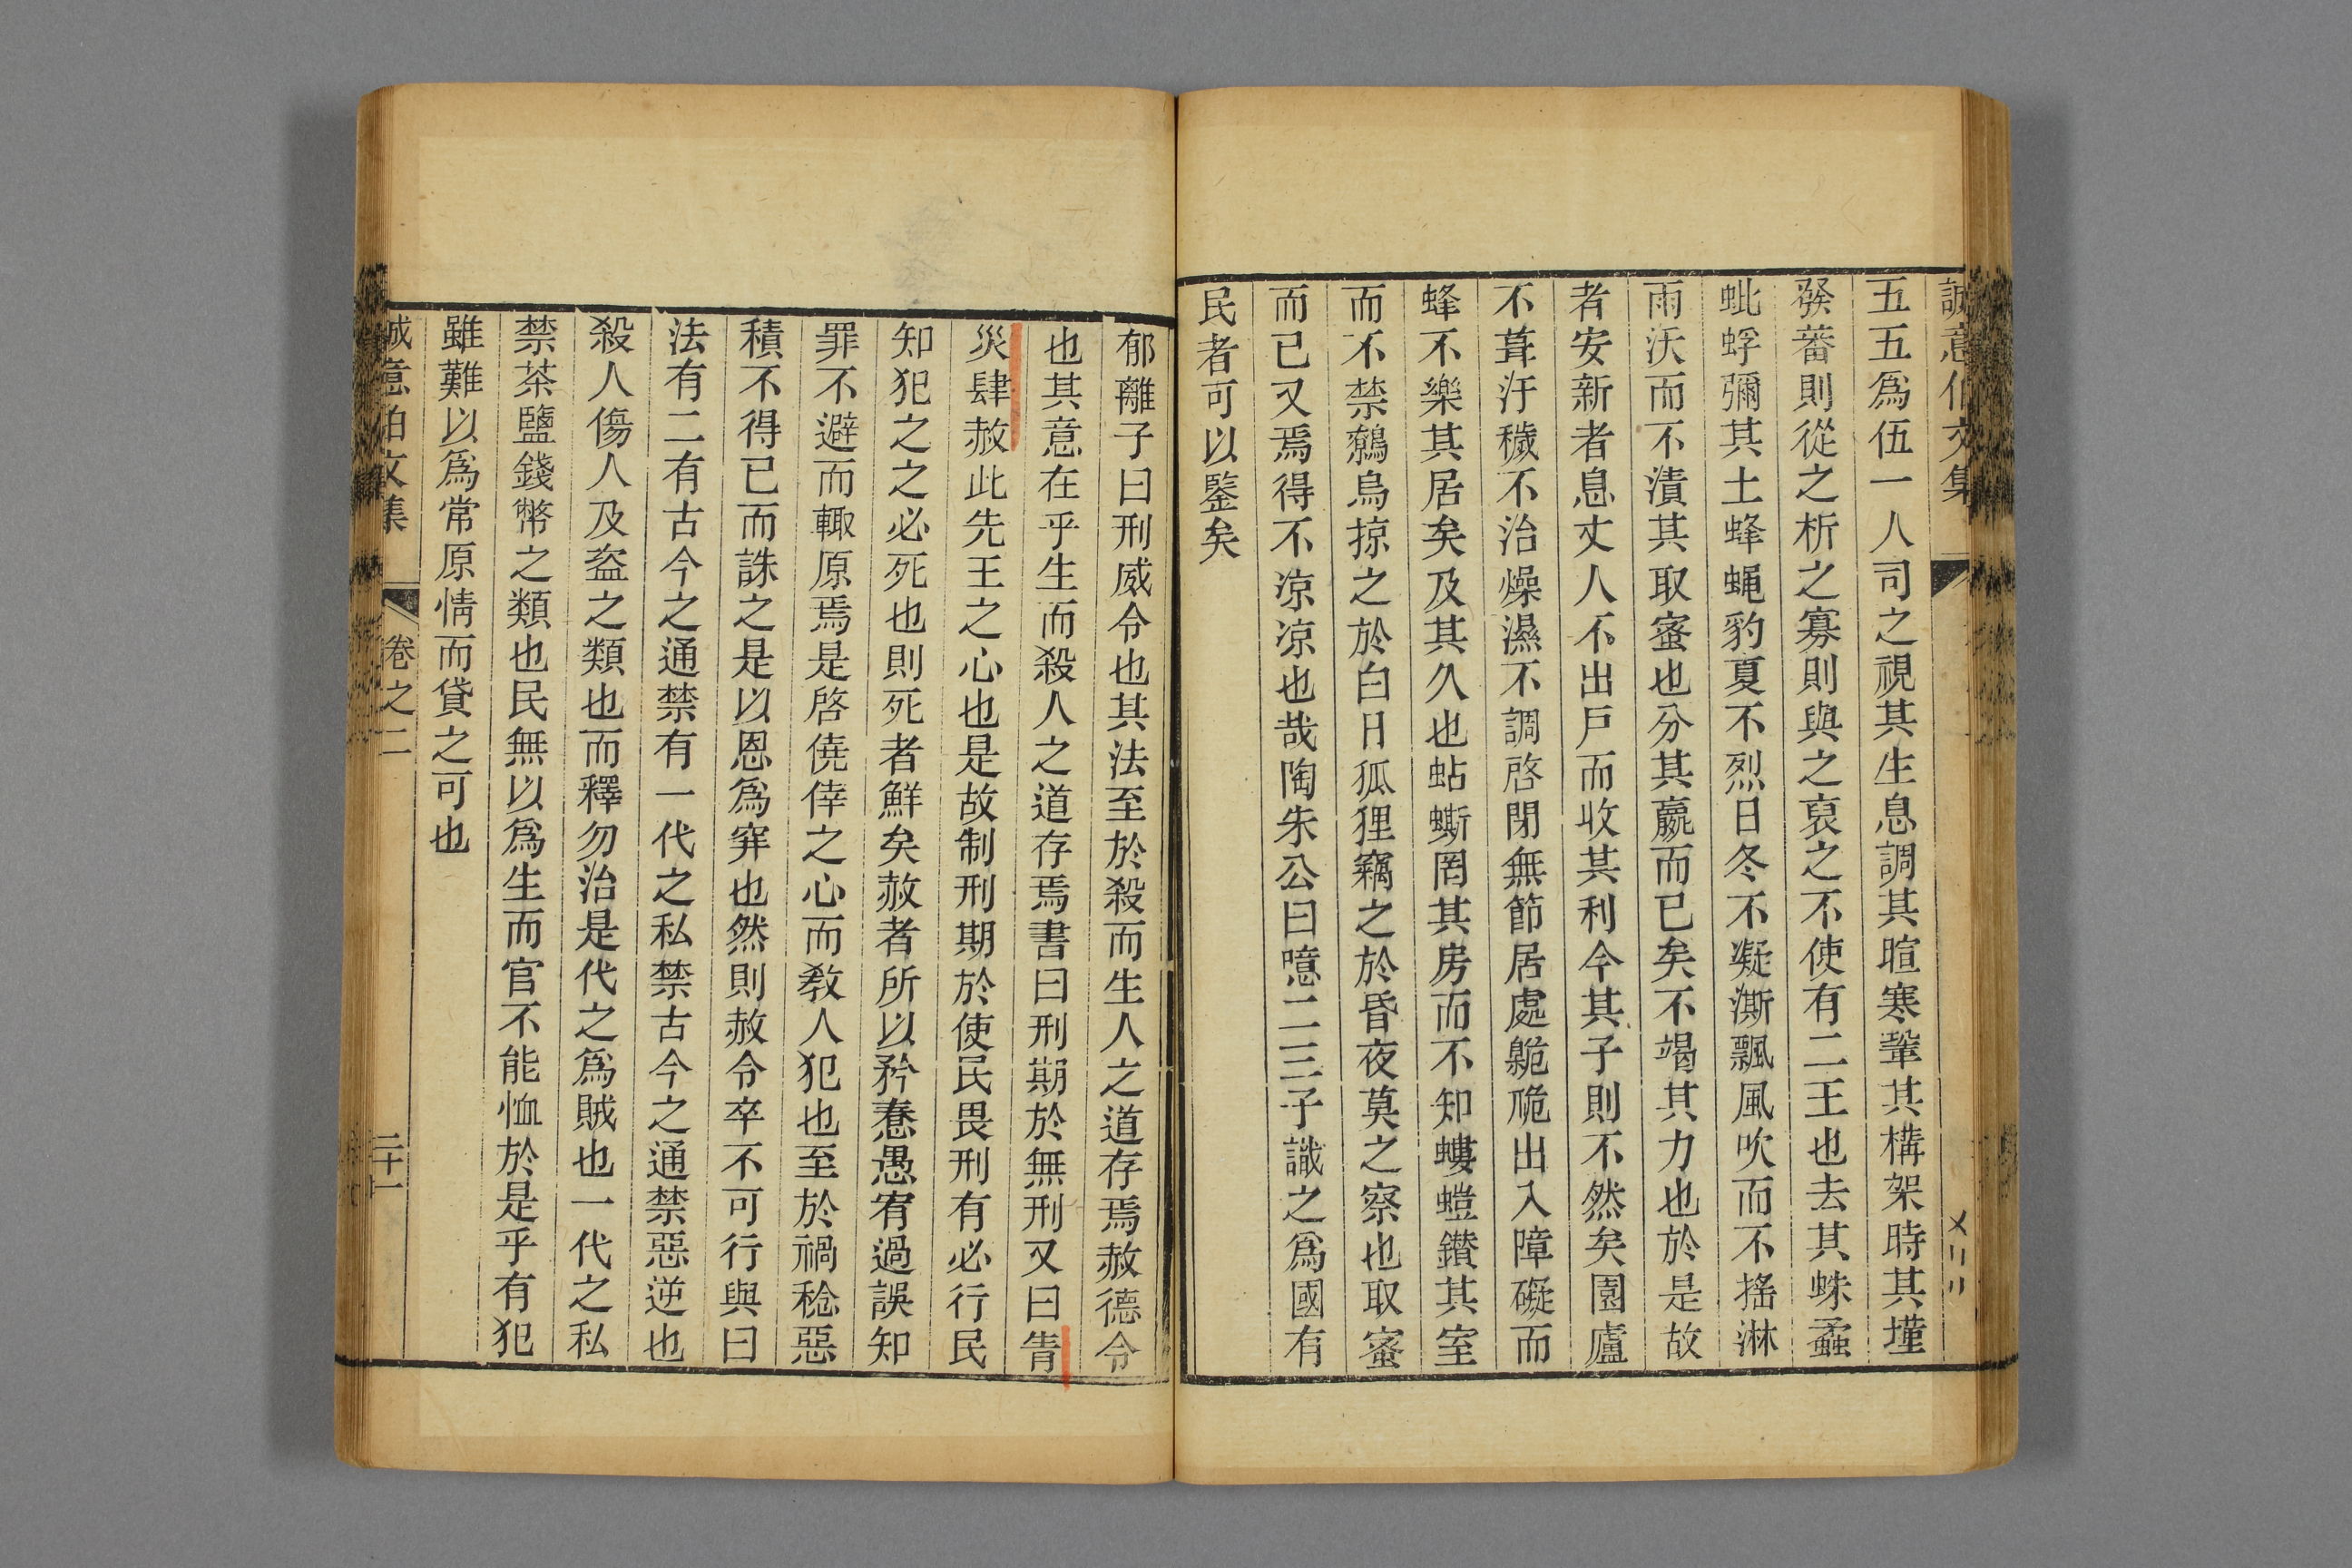 誠意伯文集
五五爲伍一人司之視其生息調其暄寒鞏其構架時其墐
發蕃則從之析之寡則與之裒之不使有二王也去其蛛蟊
蚍蜉彌其土蜂蝇豹夏不烈日冬不凝澌飄風吹而不搖淋
雨沃而不漬其取蜜也分其贏而已矣不竭其力也於是故
者安新者息丈人不出戶而收其利今其子則不然矣園廬
不葺汙穢不治燥濕不調啓閉無節居處臲卼出入障礙而
蜂不樂其居矣及其久也蛅蟖罔其房而不知螻螘鑚其室
而不禁鷯鳥掠之於白日狐狸竊之於昏夜莫之察也取蜜
而已又焉得不凉凉也哉陶朱公曰噫二三子識之爲國有
民者可以鑒矣
郁離子曰刑威令也其法至於殺而生人之道存焉赦德令
也其意在乎生而殺人之道存焉書曰刑期於無刑又曰眚
災肆赦此先王之心也是故制刑期於使民畏刑有必行民
知犯之之必死也則死者鮮矣赦者所以矜惷愚宥過誤知
罪不避而輙原焉是啓僥倖之心而敎人犯也至於禍稔惡
積不得已而誅之是以恩爲穽也然則赦令卒不可行與曰
法有二有古今之通禁有一代之私禁古今之通禁惡逆也
殺人傷人及盗之類也而釋勿治是代之爲賊也一代之私
禁茶鹽錢幣之類也民無以爲生而官不能恤於是乎有犯
雖難以爲常原情而貸之可也
誠意伯文集 卷之二 二十一